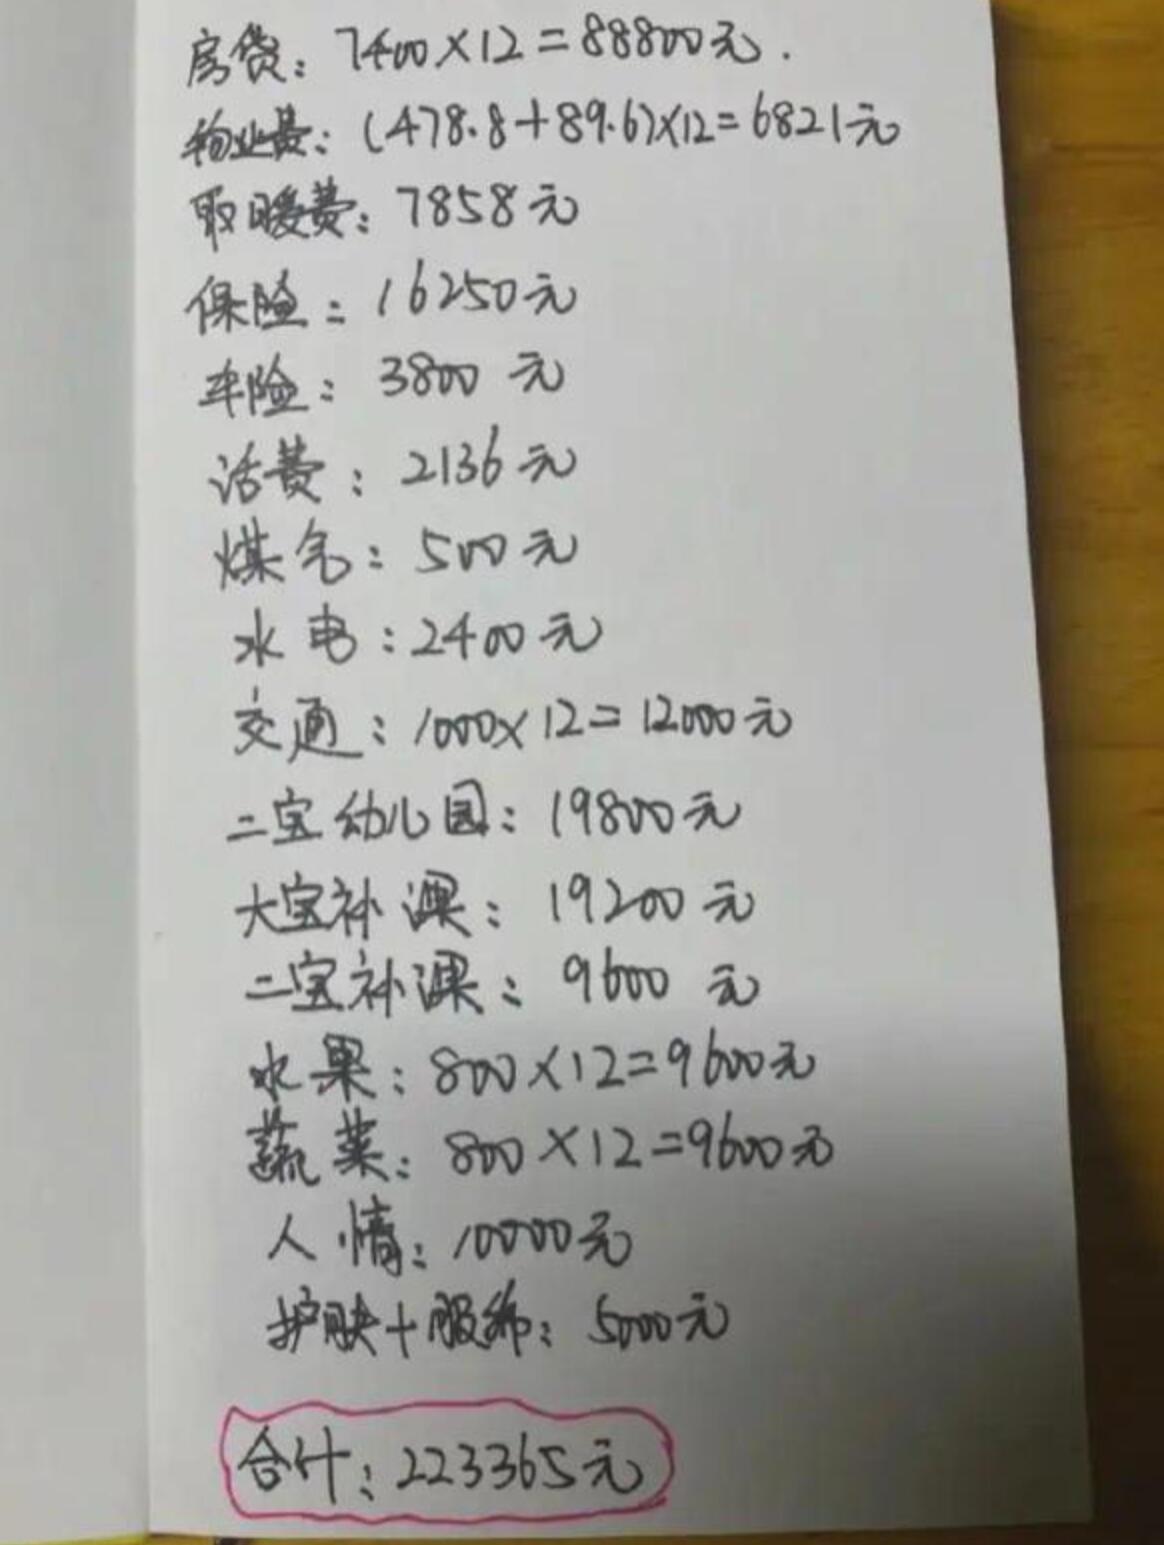 房贷：7400×12=88800元.
物业费：(478.8+89.6)×12=6821元
取暖费：7858元
保险：16250元
车险：3800元
话费：2136元
煤气：500元
水电：2400元
交通：1000×12=12000元
二宝幼儿园：19800元
大宝补课：19200元
二宝补课：9600元
水果：800×12=9600元
蔬菜：800×12=9600元
人情：10000元
护肤+服饰：5000元
合计：223365元